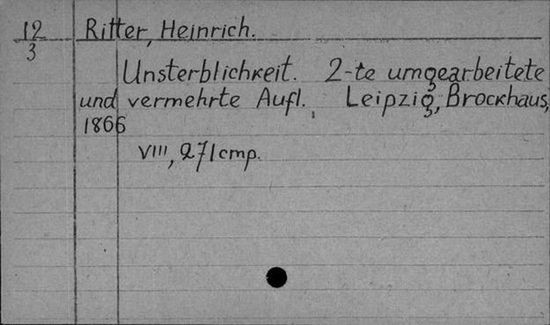 12
3
Ritter, Heinrich.
Unsterblichkeit. 2-te umgearbeitete
und vermehrte Aufl. Leipzig, Brockhaus,
1866
VIII, 271 стр.